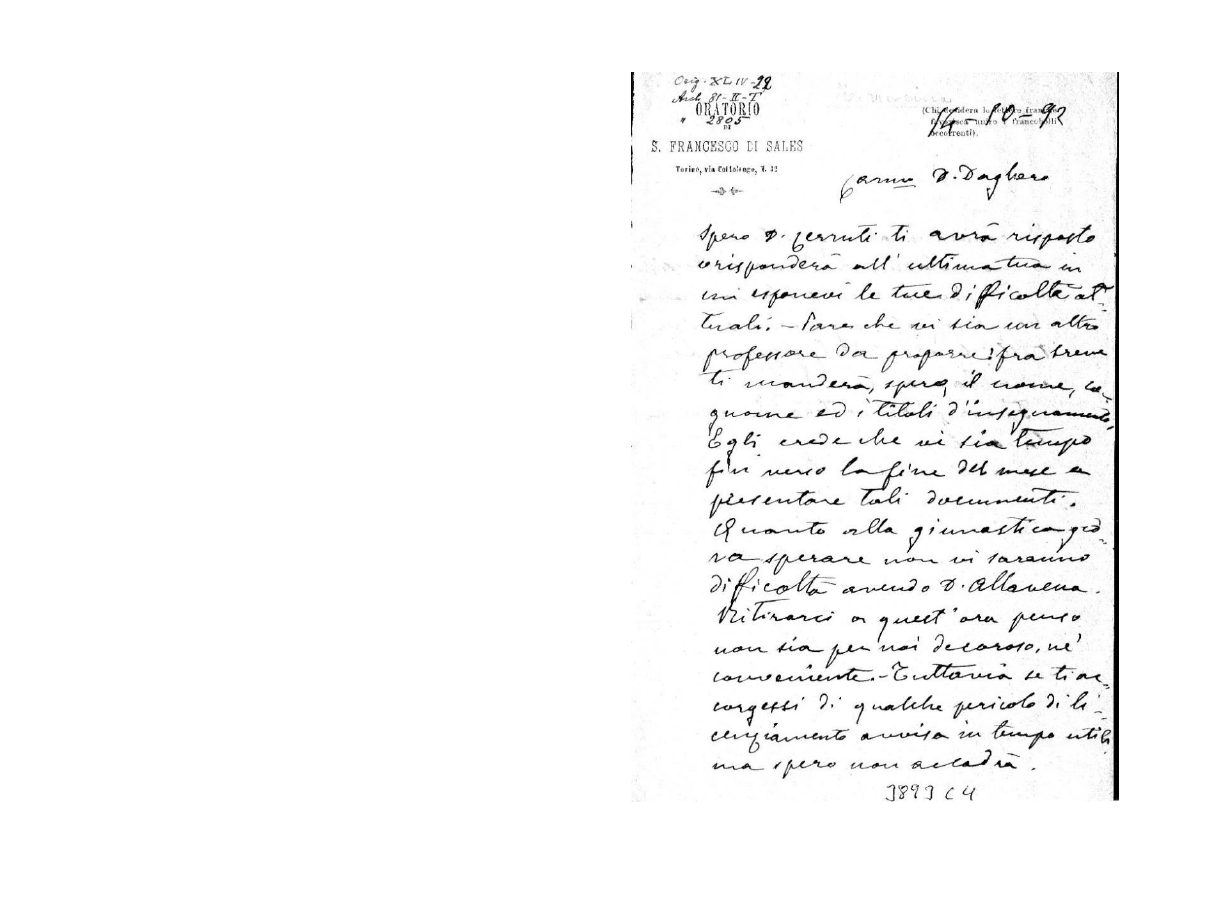 Orig. XLIV-22
Arch 81-II-T
ORATORIO
" 2805
DI
S. FRANCESCO DI SALES
Torino, via Cottolengo, N. 32
(Chi desidera lettere
unire i francobolli
occorrenti).
14-10-92
Carmo D. Daghero
Spero D. Cerruti ti avrà risposto
o risponderà all' ultima tua in
cui esponevi le tue difficoltà at-
tuali. - Pare che vi sia un altro
professore da proporre: fra breve
ti manderà, spero, il nome, co-
gnome ed i titoli d'insegnamento,
Egli crede che vi sia tempo
fin verso la fine del mese a
presentare tali documenti.
Quanto alla ginnastica gio-
va sperare non vi saranno
difficoltà avendo D. Allavena.
Ritirarci a quest'ora penso
non sia per noi decoroso, nè
conveniente. - Tuttavia se ti ac-
corgessi di qualche pericolo di li-
cenziamento avvisa in tempo utile
ma spero non accadrà.
3893 C 4